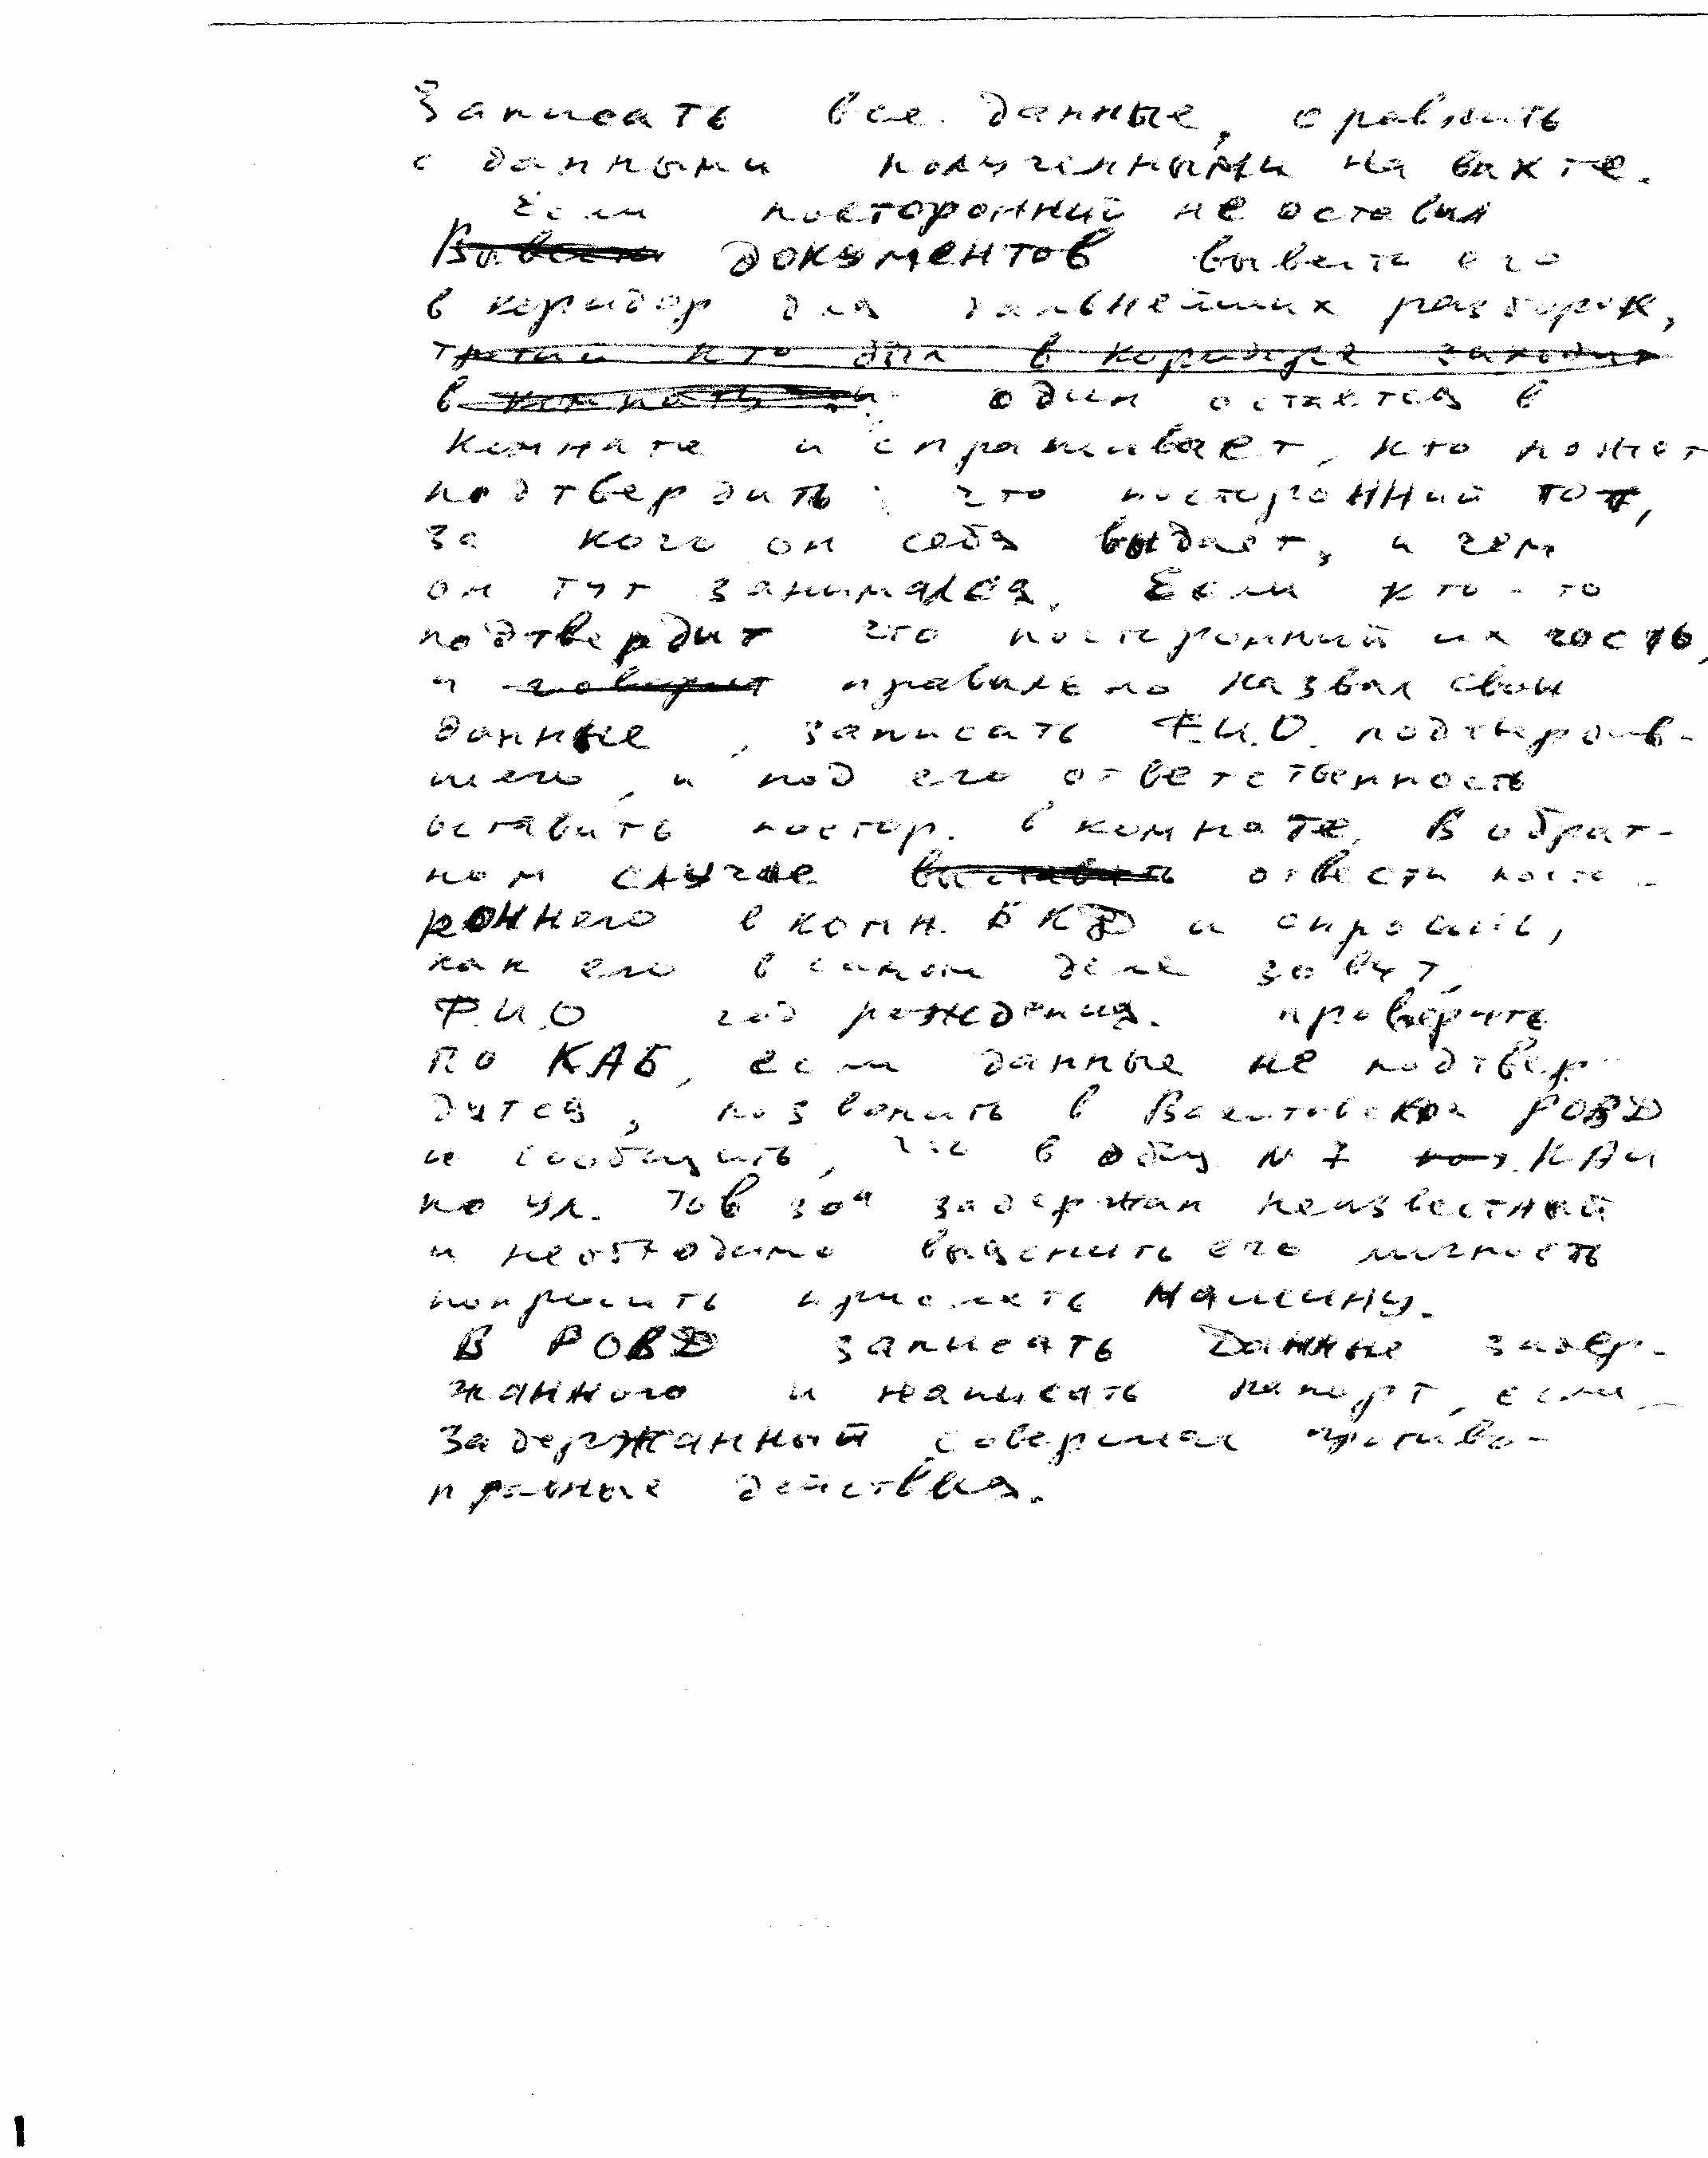 Записать все данные, сравнить
с данными полученными на вахте.
Если посторонний не оставил
Вывести документов вывести его
в коридор для дальнейших разборок,
третий кто был в коридоре заходит
в комнату и один остается в
комнате и спрашивает, кто может
подтвердить, что посторонний тот,
за кого он себя выдает, и чем
он тут занимался. Если кто-то
подтвердит что посторонний их гость,
и говорит правильно назвал свои
данные, записать Ф.И.О. подтвердив-
шего, и под его ответственность
оставить постор. в комнате. В обрат-
ном случае выставить отвести посто-
роннего в комн. БКД и спросить,
как его в самом деле зовут,
Ф.И.О год рождения. проверить
по КАБ, если данные не подтвер-
дятся, позвонить в Вахитовский РОВД
и сообщить, что в общ N 7 КАИ
по ул. задержан неизвестный
и необходимо выяснить его личность
попросить прислать машину.
В РОВД записать данные задер-
жанного и написать рапорт, если
задержанный совершил противо-
правные действия.